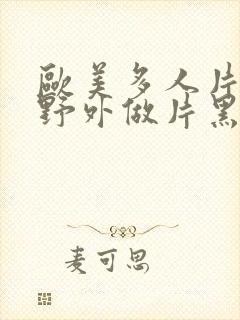 歐美多人片
野外做片黑
麦可思